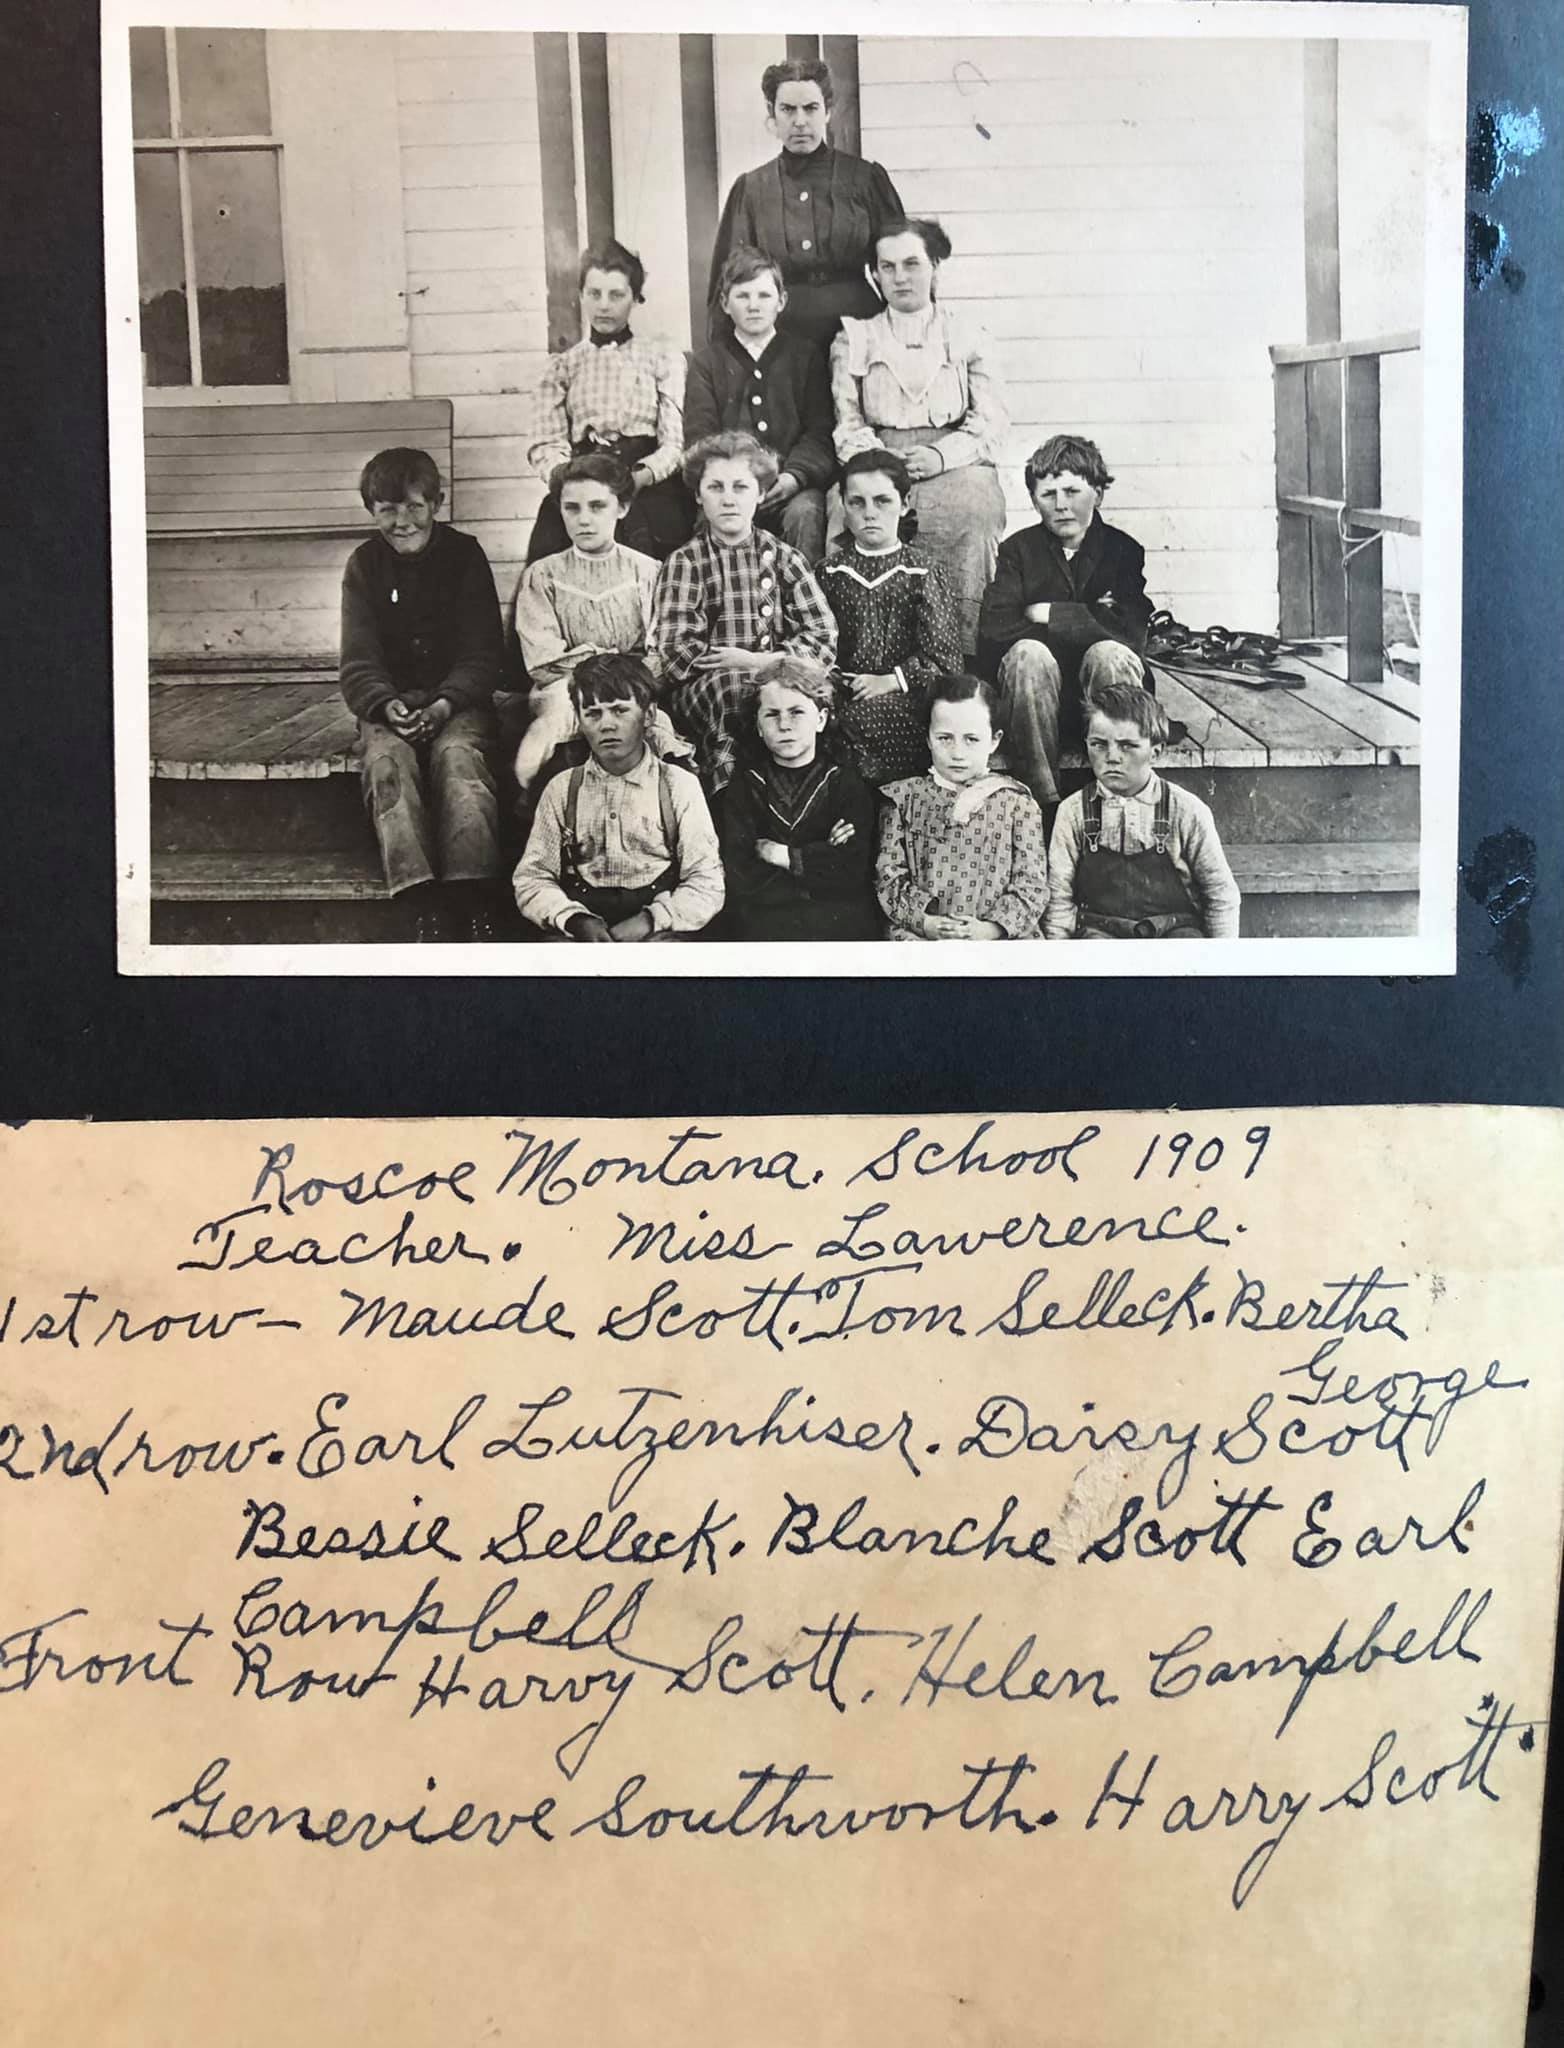 Roscoe Montana. School 1909
Teacher. Miss Lawerence.
1st row - Maude Scott. Tom Selleck. Bertha
George
2nd row. Earl Lutzenhiser. Daisy Scott
Bessie Selleck. Blanche Scott Earl
Campbell
Front Row Harvy Scott. Helen Campbell
Genevieve Southworth. Harry Scott